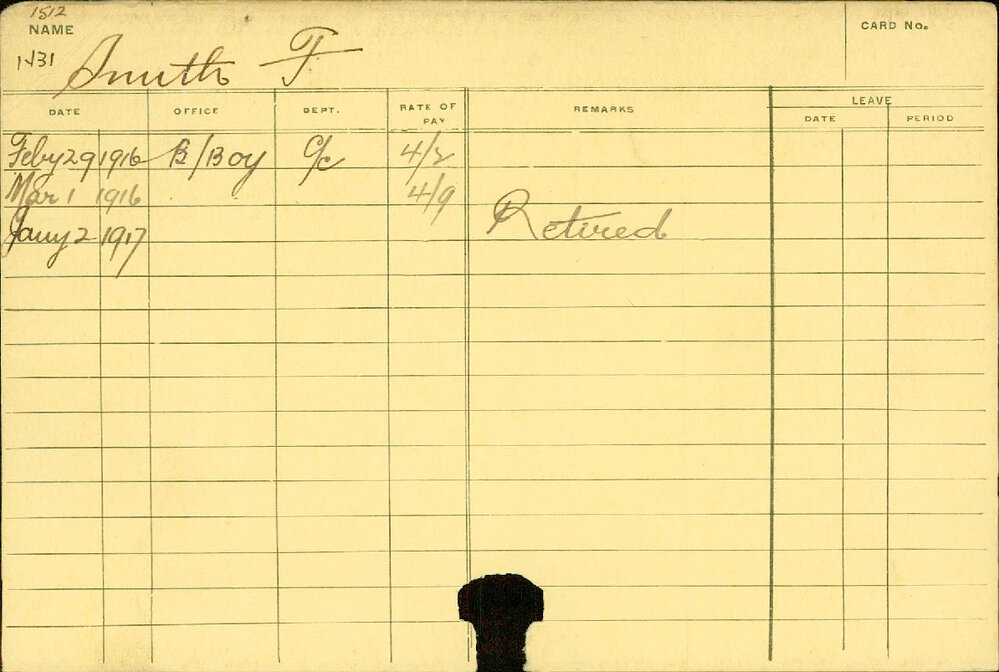 1512
NAME CARD No.
1431 Smith F
DATE OFFICE DEPT. RATE OF PAY REMARKS LEAVE
DATE PERIOD
Feby 29 1916 B/Boy C/c 4/2
Mar 1 1916 4/9
Jany 2 1917 Retired